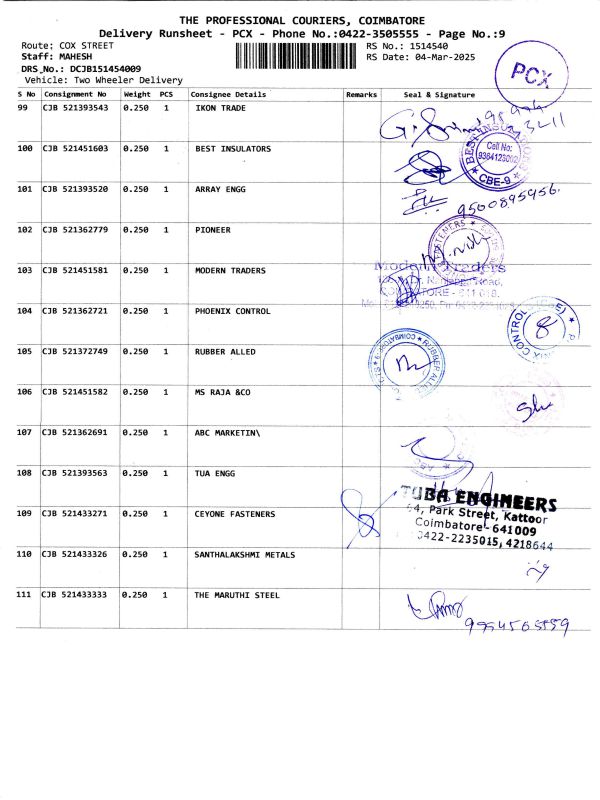 THE PROFESSIONAL COURIERS, COIMBATORE
Delivery Runsheet - PCX - Phone No.:0422-3505555 - Page No.:9
Route: COX STREET RS No.: 1514540
Staff: MAHESH RS Date: 04-Mar-2025
DRS_No.: DCJB151454009
Vehicle: Two Wheeler Delivery
PCX
S No Consignment No Weight PCS Consignee Details Remarks Seal & Signature
99 CJB 521393543 0.250 1 IKON TRADE
100 CJB 521451603 0.250 1 BEST INSULATORS
BEST INSULATORS
Cell No:
9364123002
CBE-9
101 CJB 521393520 0.250 1 ARRAY ENGG
9500895956
102 CJB 521362779 0.250 1 PIONEER
103 CJB 521451581 0.250 1 MODERN TRADERS
Modern Traders
104 CJB 521362721 0.250 1 PHOENIX CONTROL
105 CJB 521372749 0.250 1 RUBBER ALLED
106 CJB 521451582 0.250 1 MS RAJA &CO
107 CJB 521362691 0.250 1 ABC MARKETIN\
108 CJB 521393563 0.250 1 TUA ENGG
TUBA ENGINEERS
Park Street, Kattoor
Coimbatore - 641009
0422-2235015, 4218644
109 CJB 521433271 0.250 1 CEYONE FASTENERS
110 CJB 521433326 0.250 1 SANTHALAKSHMI METALS
111 CJB 521433333 0.250 1 THE MARUTHI STEEL